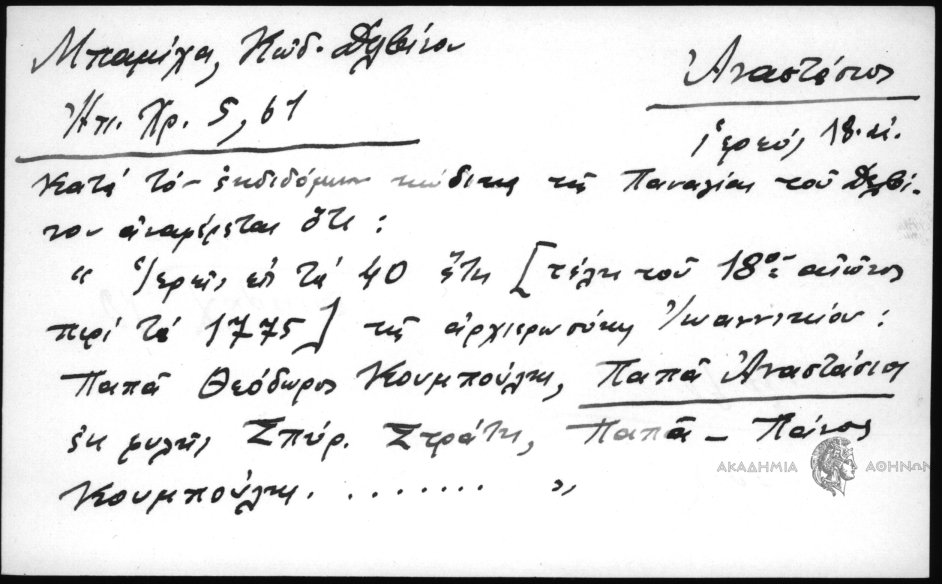 Μπαμίχα, Κώδ. Δελβίνου
Ἀναστάσιος
Ἠπ. Χρ. 5, 61
ἱερεύς 18. αἰ.
Κατά τόν ἐκδιδόμενον κώδικα τῆς Παναγίας τοῦ Δελβί-
νου ἀναφέρεται ὅτι :
" Ἱερεῖς ἐπί τά 40 ἔτη [τέλη τοῦ 18ου αἰῶνος
περί τά 1775] τῆς ἀρχιερωσύνης Ἰωαννικίου :
Παπᾶ Θεόδωρος Κουμπούλης, Παπᾶ Ἀναστάσιος
ἐκ φυλῆς Σπύρ. Στράτη, Παπᾶ - Πάνος
Κουμπούλης. . . . . . . . "
ΑΚΑΔΗΜΙΑ ΑΘΗΝΩΝ